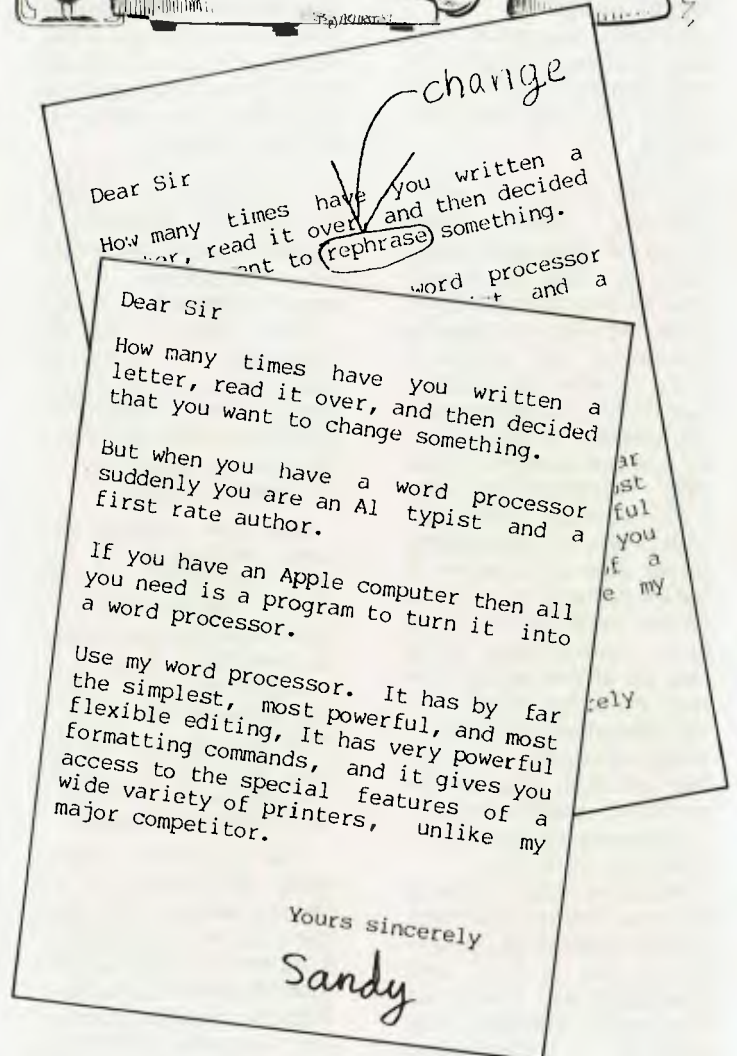 change
Dear Sir
How many times have you written a
read it over, and then decided
to rephrase something.
word processor
and a
Dear Sir
How many times have you written a
letter, read it over, and then decided
that you want to change something.
But when you have a word processor
suddenly you are an A1 typist and a
first rate author.
If you have an Apple computer then all
you need is a program to turn it into
a word processor.
Use my word processor. It has by far
the simplest, most powerful, and most
flexible editing, It has very powerful
formatting commands, and it gives you
access to the special features of a
wide variety of printers, unlike my
major competitor.
Yours sincerely
Sandy
you
a
my